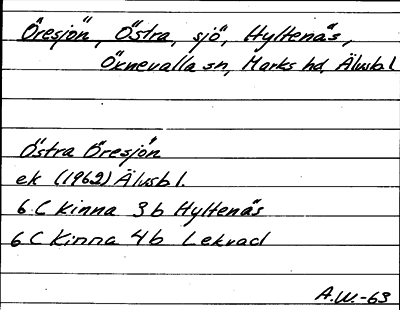 Öresjön, Östra, sjö, Hyltenäs,
Öxnevalla sn, Marks hd, Älvsb l
Östra Öresjön
ek (1962) Älvsb l.
6 C Kinna 3b Hyltenäs
6 C Kinna 4b Lekvad
A.W.-63